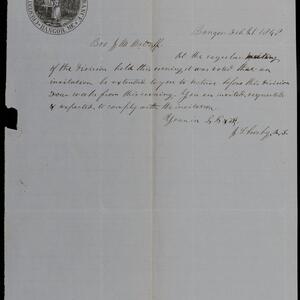 BANGOR, ME.
Bangor Feb 1st 184
Bro J. M. Metcalf
At the regular meeting
of the Division held this evening, it was voted that an
invitation be extended to you to lecture before this Division
four weeks from this evening. You are invited, requested
& expected to comply with the invitation.
Yours in L. P. & F.
J. L. Crosby, R.S.